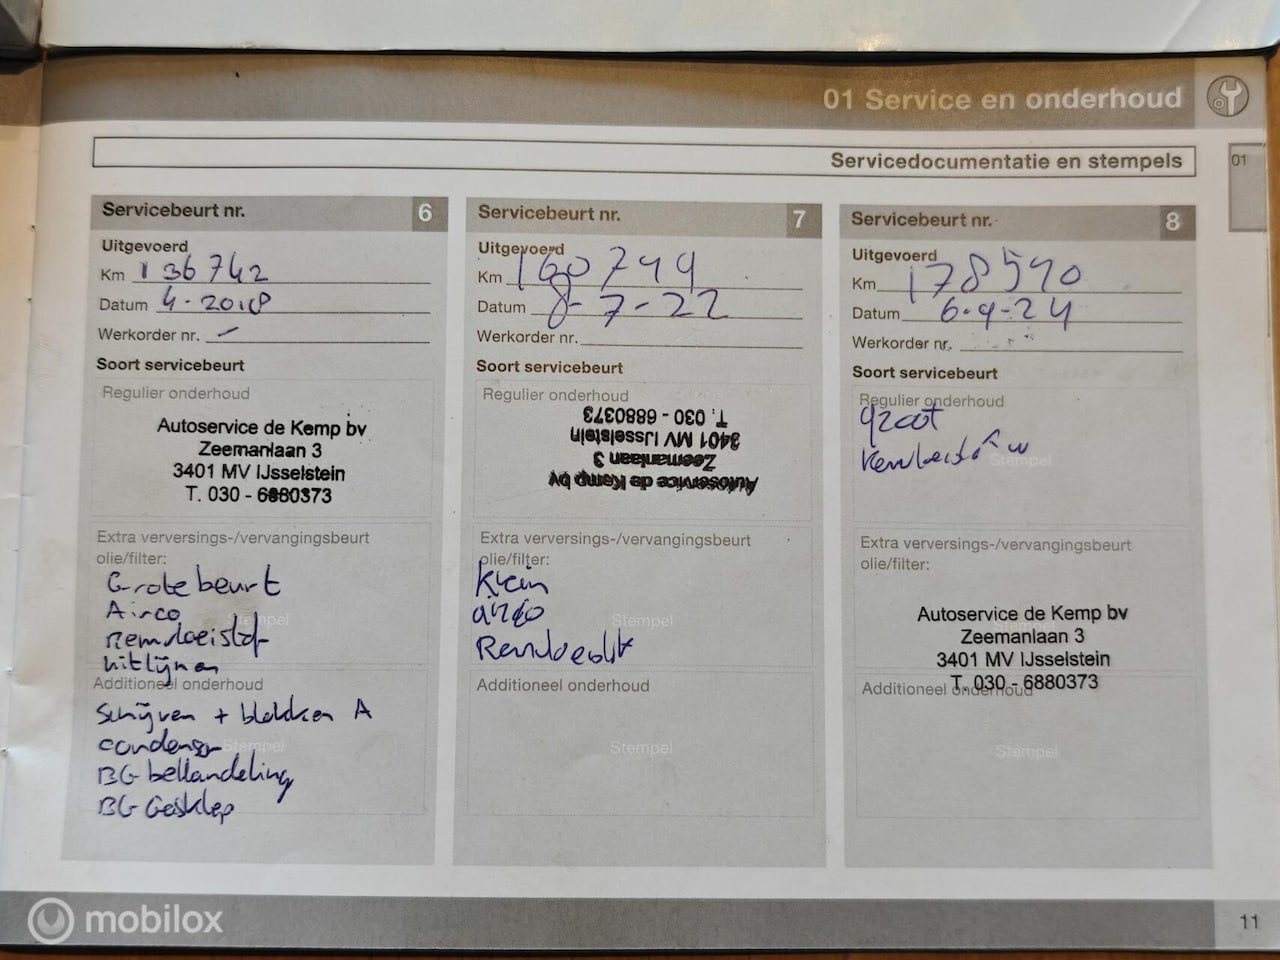 01 Service en onderhoud
Servicedocumentatie en stempels
01
Servicebeurt nr. 6
Uitgevoerd
Km 136742
Datum 4-2018
Werkorder nr. -
Soort servicebeurt
Regulier onderhoud
Autoservice de Kemp bv
Zeemanlaan 3
3401 MV IJsselstein
T. 030 - 6880373
Extra verversings-/vervangingsbeurt
olie/filter:
Grote beurt
Airco
Stempel
Remvloeistof
uitlijnen
Additioneel onderhoud
Schijven + blokken A
condensor
Stempel
BG behandeling
BG Gasklep
Servicebeurt nr. 7
Uitgevoerd
Km 160799
Datum 8-7-22
Werkorder nr.
Soort servicebeurt
Regulier onderhoud
Autoservice de Kemp bv
Zeemanlaan 3
3401 MV IJsselstein
T. 030 - 6880373
Extra verversings-/vervangingsbeurt
olie/filter:
Klein
airco
Stempel
Additioneel onderhoud
Stempel
Servicebeurt nr. 8
Uitgevoerd
Km 178590
Datum 6-9-24
Werkorder nr.
Soort servicebeurt
Regulier onderhoud
groot
Stempel
Extra verversings-/vervangingsbeurt
olie/filter:
Autoservice de Kemp bv
Stempel
Zeemanlaan 3
3401 MV IJsselstein
T. 030 - 6880373
Additioneel onderhoud
Stempel
mobilox
11